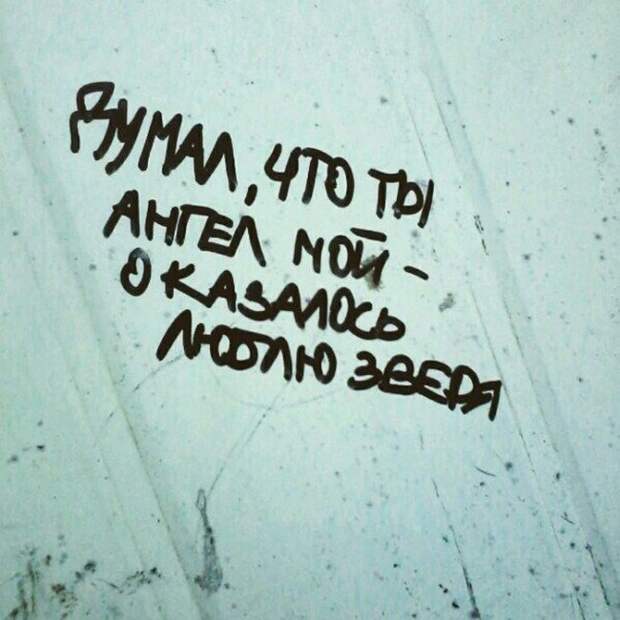 ДУМАЛ, ЧТО ТЫ
АНГЕЛ МОЙ -
ОКАЗАЛОСЬ
ЛЮБЛЮ ЗВЕРЯ